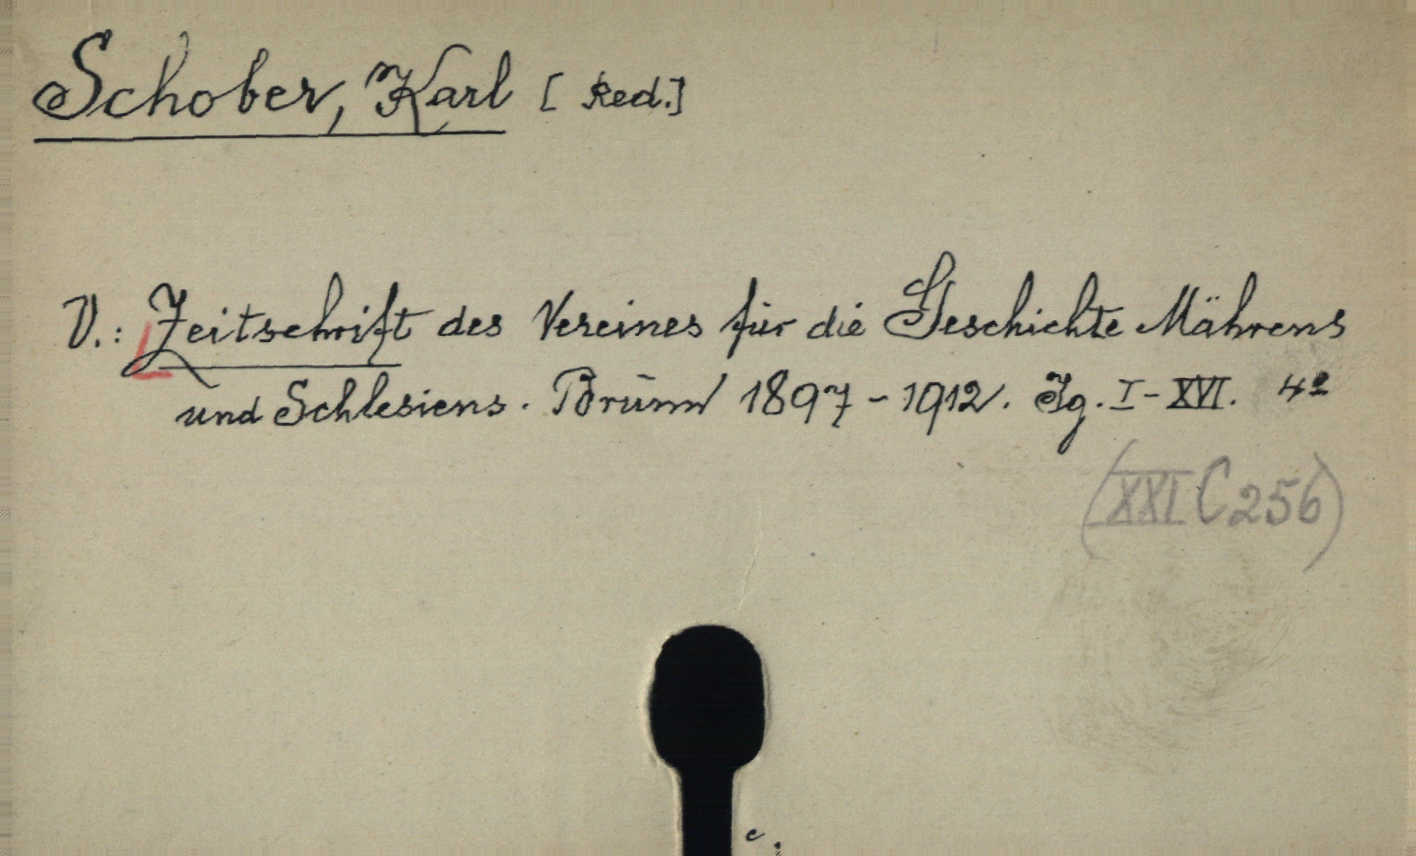 Schober, Karl [Red.]
V.: Zeitschrift des Vereines für die Geschichte Mährens
und Schlesiens. Brünn 1897-1912. Jg. I-XVI. 4º
(XXI C 256)
c.